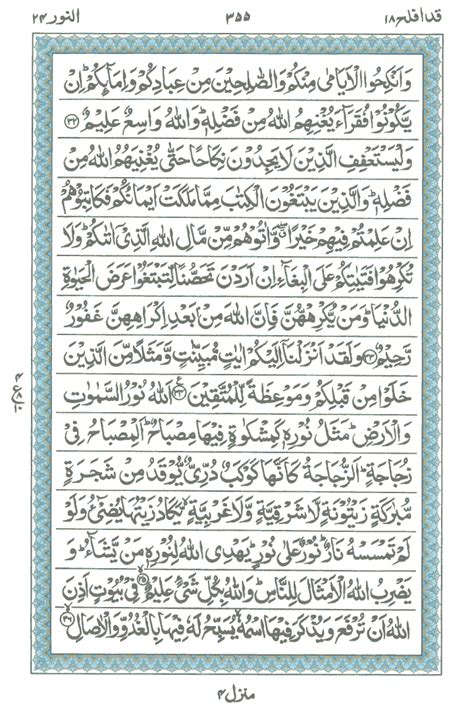 قد افلح ۱۸ ۳۵۵ النور ۲۴
وَاَنْكِحُوا الْاَيَامٰى مِنْكُمْ وَالصّٰلِحِيْنَ مِنْ عِبَادِكُمْ وَاِمَآىِٕكُمْ ؕ اِنْ
يَّكُوْنُوْا فُقَرَآءَ يُغْنِهِمُ اللّٰهُ مِنْ فَضْلِهٖ ؕ وَاللّٰهُ وَاسِعٌ عَلِيْمٌ ۳۲
وَلْيَسْتَعْفِفِ الَّذِيْنَ لَا يَجِدُوْنَ نِكَاحًا حَتّٰى يُغْنِيَهُمُ اللّٰهُ مِنْ
فَضْلِهٖ ؕ وَالَّذِيْنَ يَبْتَغُوْنَ الْكِتٰبَ مِمَّا مَلَكَتْ اَيْمَانُكُمْ فَكَاتِبُوْهُمْ
اِنْ عَلِمْتُمْ فِيْهِمْ خَيْرًا ۖ وَّاٰتُوْهُمْ مِّنْ مَّالِ اللّٰهِ الَّذِيْۤ اٰتٰىكُمْ ؕ وَلَا
تُكْرِهُوْا فَتَيٰتِكُمْ عَلَى الْبِغَآءِ اِنْ اَرَدْنَ تَحَصُّنًا لِّتَبْتَغُوْا عَرَضَ الْحَيٰوةِ
الدُّنْيَا ؕ وَمَنْ يُّكْرِهْهُّنَّ فَاِنَّ اللّٰهَ مِنْۢ بَعْدِ اِكْرَاهِهِنَّ غَفُوْرٌ
رَّحِيْمٌ ۳۳ وَلَقَدْ اَنْزَلْنَاۤ اِلَيْكُمْ اٰيٰتٍ مُّبَيِّنٰتٍ وَّمَثَلًا مِّنَ الَّذِيْنَ
خَلَوْا مِنْ قَبْلِكُمْ وَمَوْعِظَةً لِّلْمُتَّقِيْنَ ۳۴ اَللّٰهُ نُوْرُ السَّمٰوٰتِ
وَالْاَرْضِ ؕ مَثَلُ نُوْرِهٖ كَمِشْكٰوةٍ فِيْهَا مِصْبَاحٌ ؕ اَلْمِصْبَاحُ فِيْ
زُجَاجَةٍ ؕ اَلزُّجَاجَةُ كَاَنَّهَا كَوْكَبٌ دُرِّيٌّ يُّوْقَدُ مِنْ شَجَرَةٍ
مُّبٰرَكَةٍ زَيْتُوْنَةٍ لَّا شَرْقِيَّةٍ وَّلَا غَرْبِيَّةٍ ۙ يَّكَادُ زَيْتُهَا يُضِيْٓءُ وَلَوْ
لَمْ تَمْسَسْهُ نَارٌ ؕ نُوْرٌ عَلٰى نُوْرٍ ؕ يَهْدِى اللّٰهُ لِنُوْرِهٖ مَنْ يَّشَآءُ ؕ وَ
يَضْرِبُ اللّٰهُ الْاَمْثَالَ لِلنَّاسِ ؕ وَاللّٰهُ بِكُلِّ شَيْءٍ عَلِيْمٌ ۳۵ فِيْ بُيُوْتٍ اَذِنَ
اللّٰهُ اَنْ تُرْفَعَ وَيُذْكَرَ فِيْهَا اسْمُهٗ ۙ يُسَبِّحُ لَهٗ فِيْهَا بِالْغُدُوِّ وَالْاٰصَالِ ۳۶
منزل ۴